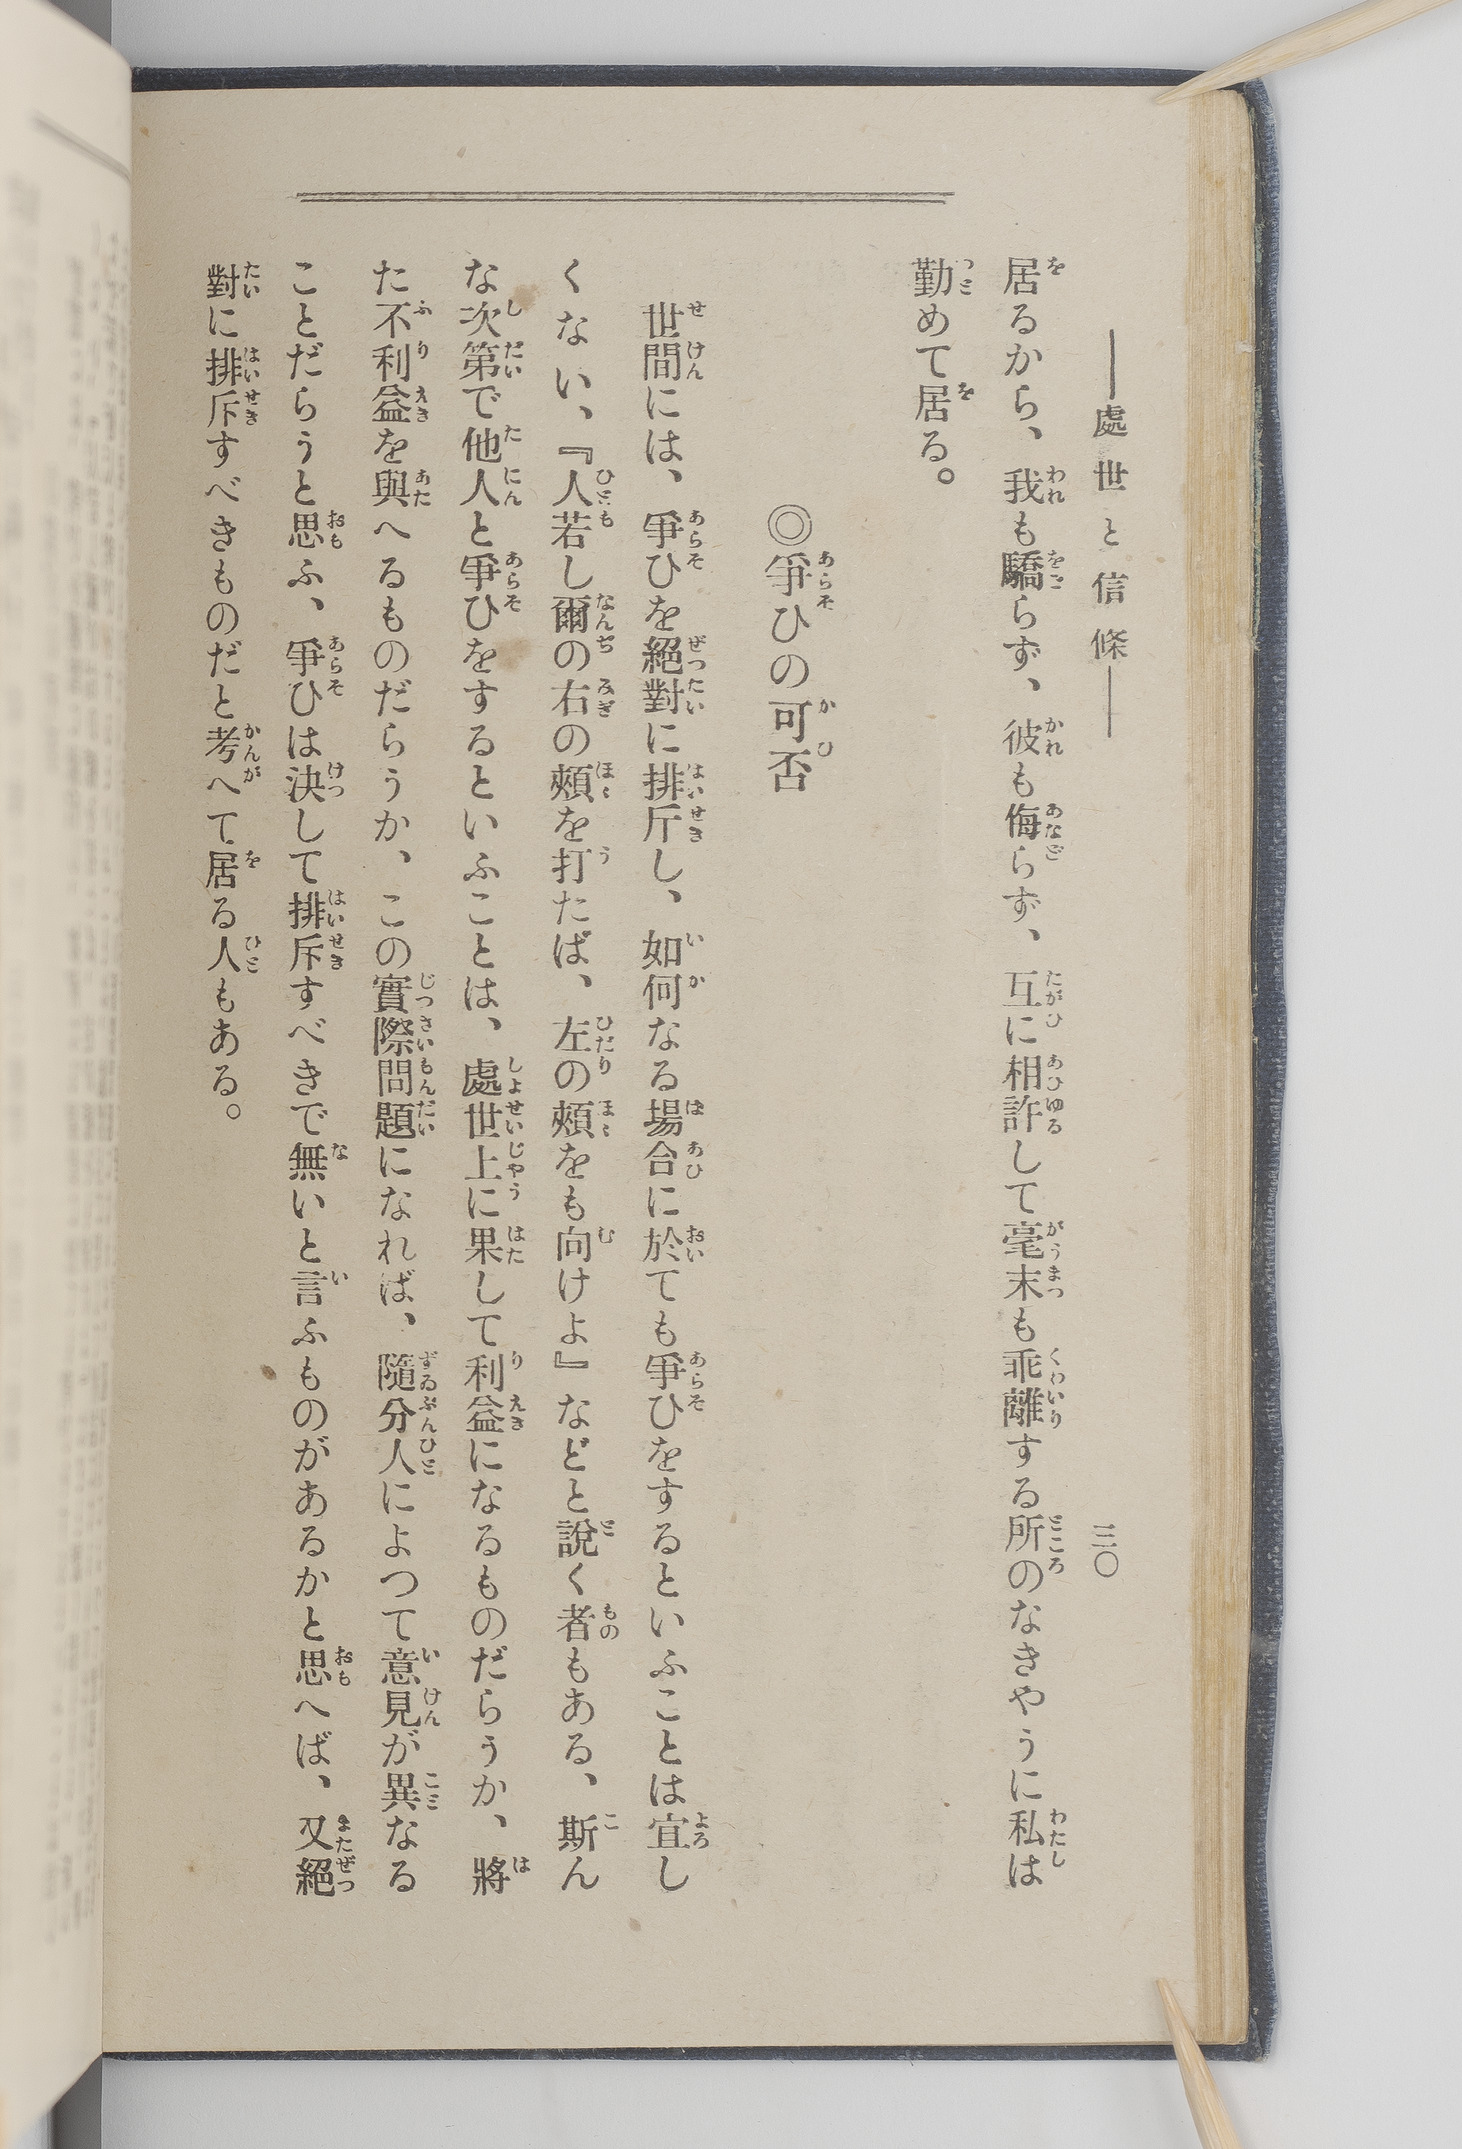 ―處世と信條― 三〇
居るから、我も驕らず、彼も侮らず、互に相許して毫末も乖離する所のなきやうに私は
勤めて居る。
◎爭ひの可否
世間には、爭ひを絕對に排斤し、如何なる場合に於ても爭ひをするといふことは宜し
くない、『人若し爾の右の頰を打たば、左の頰をも向けよ』などと說く者もある、斯ん
な次第で他人と爭ひをするといふことは、處世上に果して利益になるものだらうか、將
た不利益を與へるものだらうか、この實際問題になれば、隨分人によつて意見が異なる
ことだらうと思ふ、爭ひは決して排斥すべきで無いと言ふものがあるかと思へば、又絕
對に排斥すべきものだと考へて居る人もある。